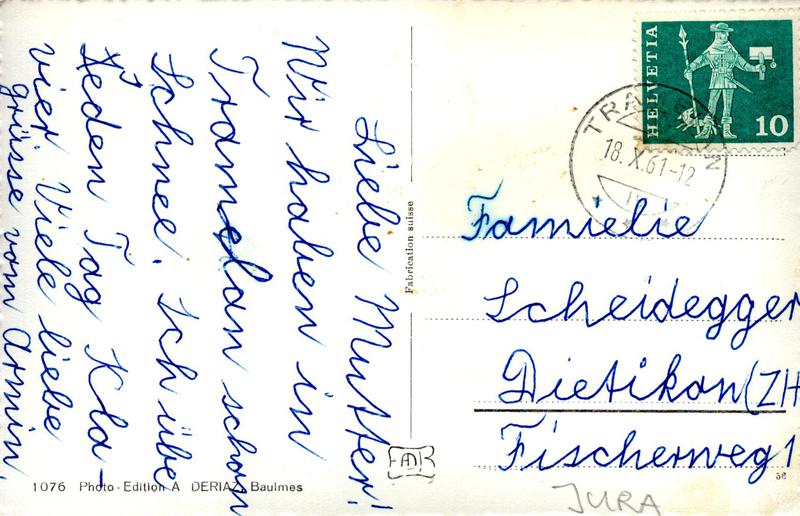 Liebe Mutter!
Wir haben in
Tramelan schon
Schnee. Ich übe
Jeden Tag Kla-
vier. Viele liebe
grüsse vom Armin.
Fabrication suisse
HELVETIA
10
18.X.61-12
Familie
Scheidegger
Dietikon (ZH
Fischerweg 1
1076 Photo-Edition A DERIAZ, Baulmes
JURA